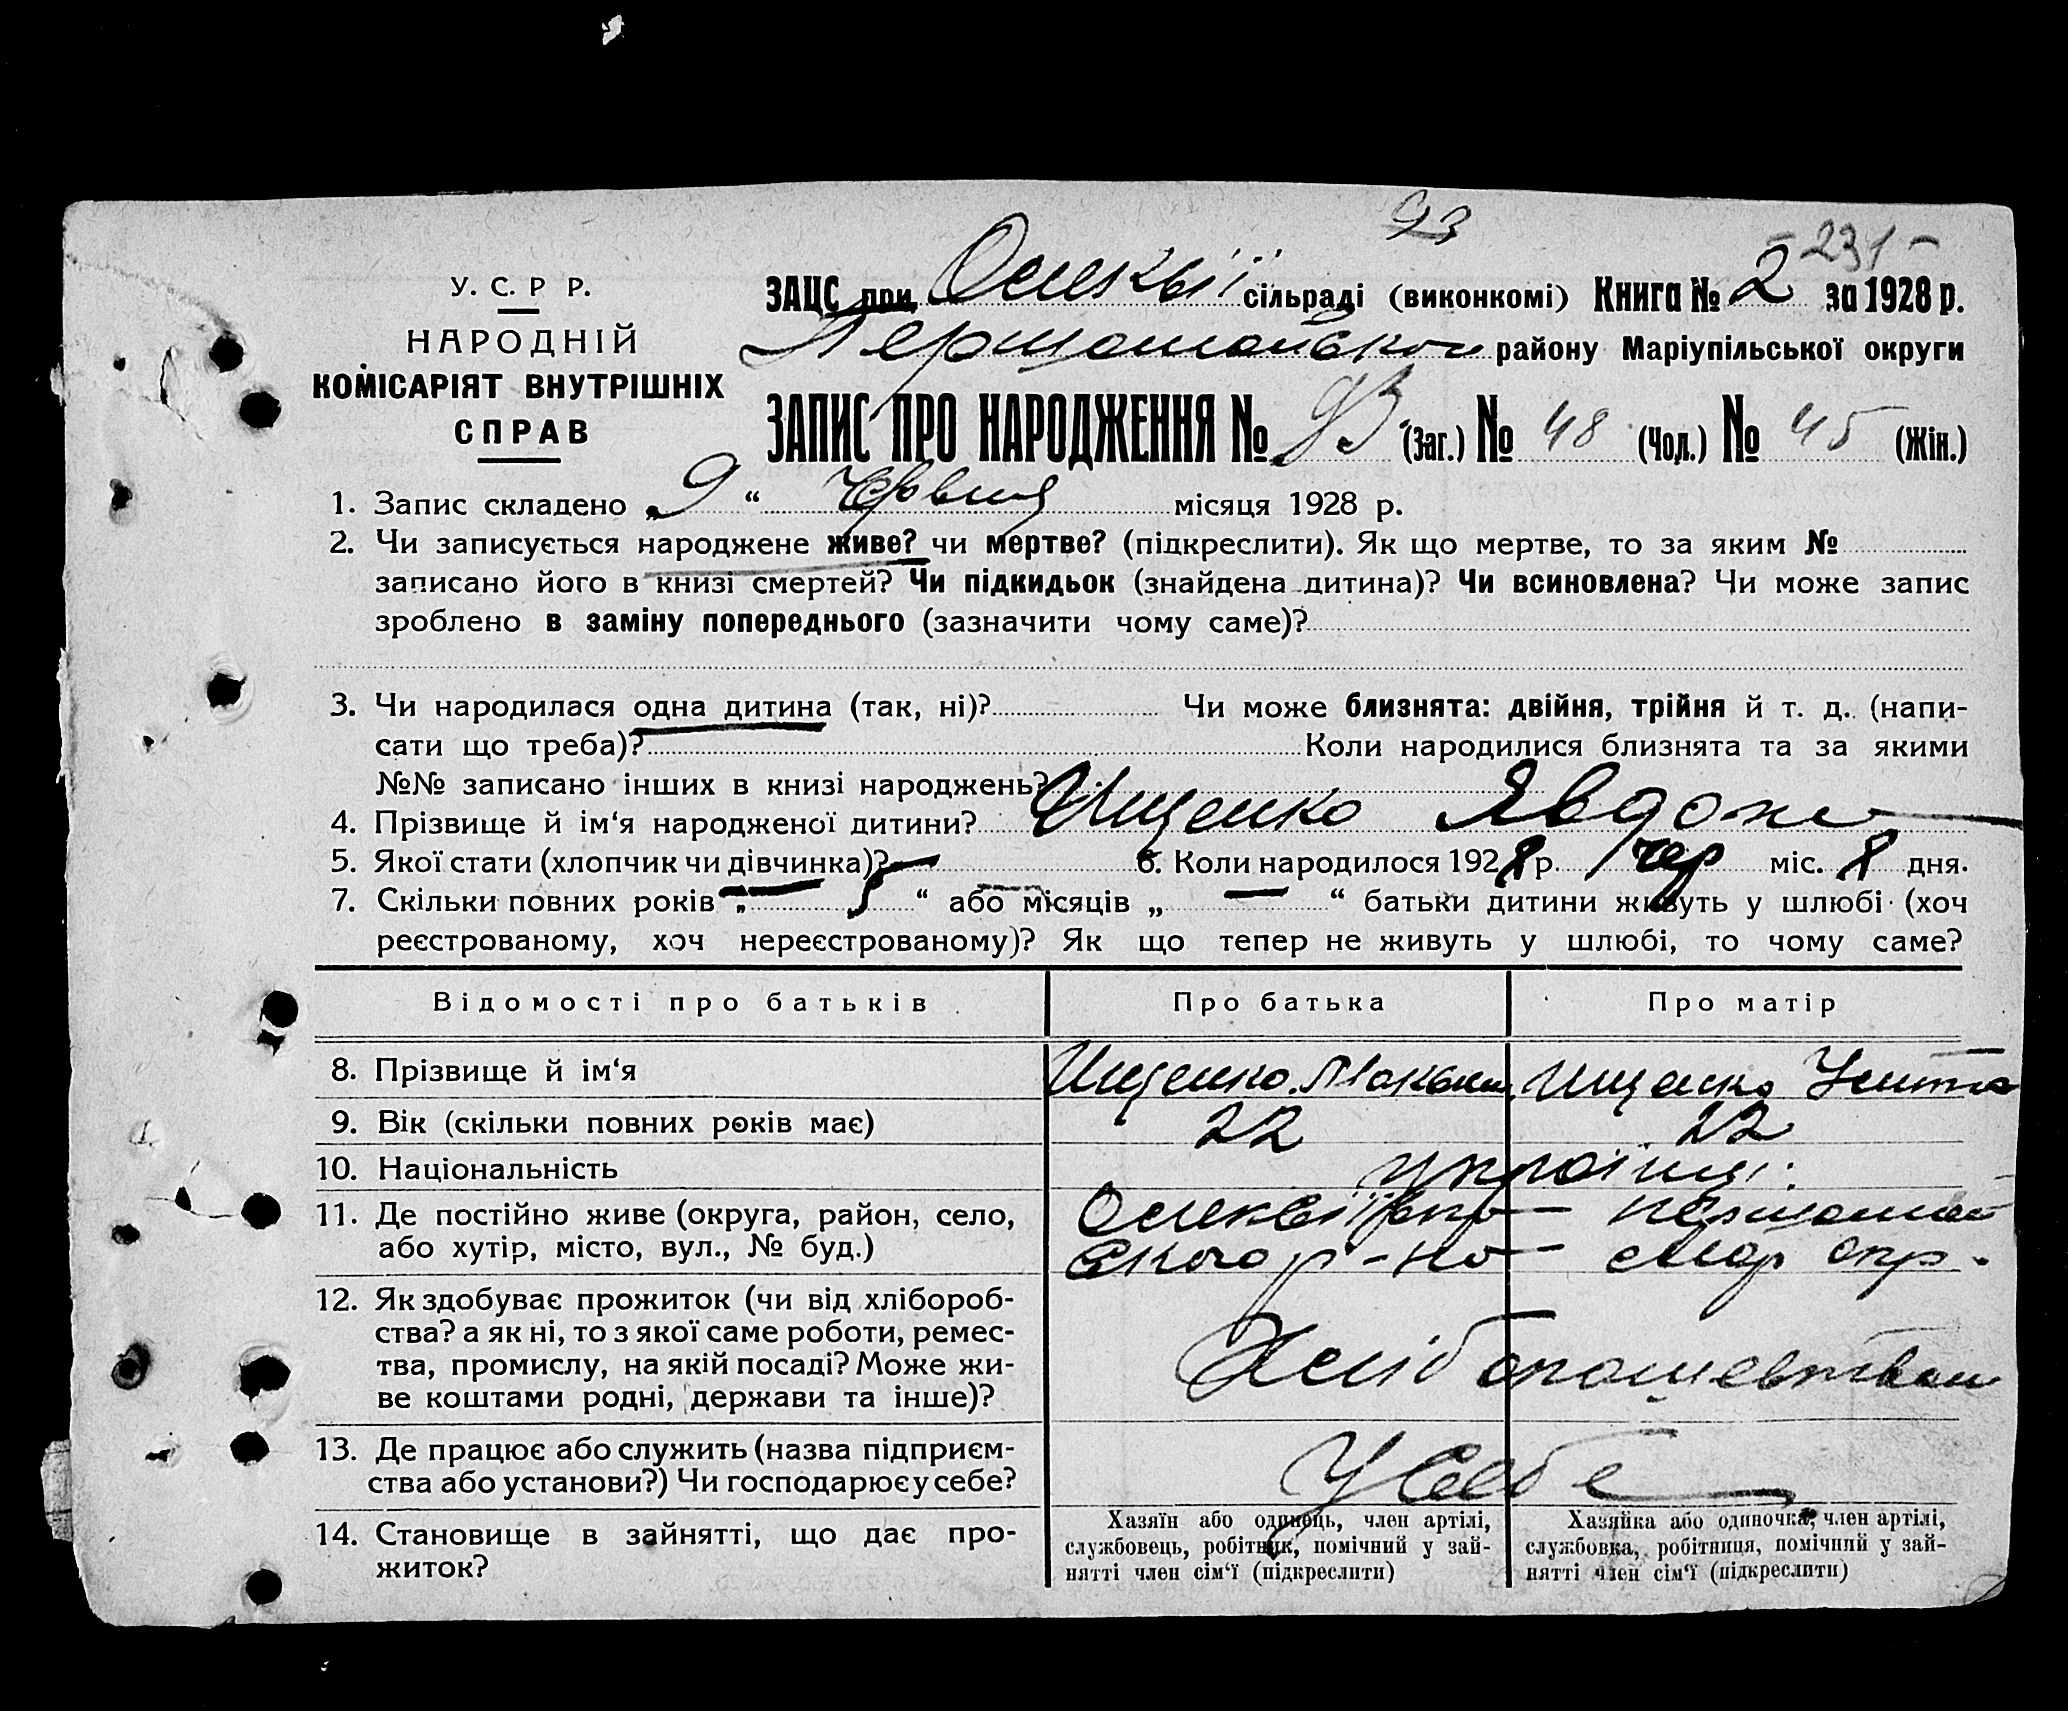 93
- 231 -
У. С. Р Р.
НАРОДНІЙ
КОМІСАРІЯТ ВНУТРІШНІХ
СПРАВ
ЗАЦС при сільраді (виконкомі) Книга № 2 за 1928 р.
Першотравневого району Маріупільської округи
ЗАПИС ПРО НАРОДЖЕННЯ № 93 (Заг.) № 48 (Чол.) № 45 (Жін.)
1. Запис складено „ 9 “ Червня місяця 1928 р.
2. Чи записується народжене живе? чи мертве? (підкреслити). Як що мертве, то за яким №
записано його в книзі смертей? Чи підкидьок (знайдена дитина)? Чи всиновлена? Чи може запис
зроблено в заміну попереднього (зазначити чому саме)?
3. Чи народилася одна дитина (так, ні)? Чи може близнята: двійня, трійня й т. д. (напи-
сати що треба)? Коли народилися близнята та за якими
№№ записано інших в книзі народжень?
4. Прізвище й ім‘я народженої дитини? Ищенко Явдоха
5. Якої стати (хлопчик чи дівчинка)? 6. Коли народилося 1928 р. чер міс. 8 дня.
7. Скільки повних років „ 5 “ або місяців „ — “ батьки дитини живуть у шлюбі (хоч
реєстрованому, хоч нереєстрованому)? Як що тепер не живуть у шлюбі, то чому саме?
Відомості про батьків Про батька Про матір
8. Прізвище й ім‘я Ищенко Ищенко
9. Вік (скільки повних років має) 22 22
10. Національність українці
11. Де постійно живе (округа, район, село,
або хутір, місто, вул., № буд.) р-ну Мар окр.
12. Як здобуває прожиток (чи від хлібороб-
ства? а як ні, то з якої саме роботи, ремес-
тва, промислу, на якій посаді? Може жи-
ве коштами родні, держави та інше)?
13. Де працює або служить (назва підприєм-
ства або установи?) Чи господарює у себе? У себе
14. Становище в зайнятті, що дає про-
житок?
Хазяїн або одинець, член артілі,
службовець, робітник, помічний у зай-
нятті член сім‘ї (підкреслити)
Хазяйка або одиночка, член артілі,
службовка, робітниця, помічний у зай-
нятті член сім‘ї (підкреслити)